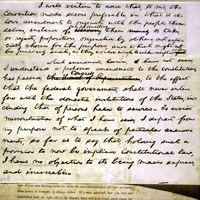 I will venture to add that to me, the
Convention mode seems preferable, in that it al-
lows amendments to originate with the people them-
selves, instead of only permitting them to take,
or reject, propositions, originated by others, not espe-
cially chosen for the purpose, and which might not
be precisely such, as they would wish
which amendment, however, I have not seen,
I understand a proposed amendment to the constitution
has passed Congress, to the effect
that the federal government, shall never inter-
fere with the domestic institutions of the States, in-
cluding that of persons held to service. To avoid
misconstruction of what I have said, I depart from
my purpose not to speak of particular amend-
ments, so far as to say that, holding such a
provision to now be implied constitutional law,
I have no objection to its being made express,
and irrevocable.